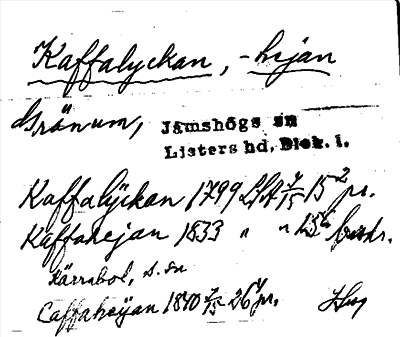 Kaffalyckan, -hejan
Gränum, Jämshögs sn
Listers hd, Blek. l.
Kaffalyckan 1799 LSA 7/15 15² pr.
Kaffahejan 1833 " " 15⁶ beskr.
Kärrabol, s. sn
Caffaheÿan 1840 7/15 26⁴ pr.